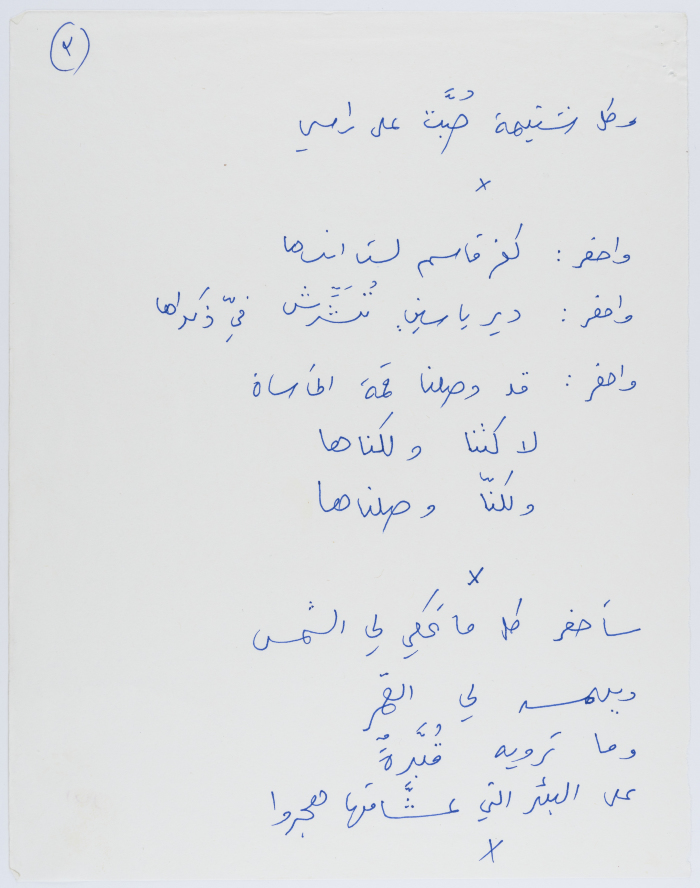 ٢
وكل شتيمة صُبَّت على راسي
x
واحفر : كفر قاسم لست انساها
واحفر : دير ياسين تُشَرِّش فيّ ذكراها
واحفر : قد وصلنا قمة المأساة
لاكتنا ولكناها
ولكنّا وصلناها
x
سأحفر كل ما تحكي لي الشمس
ويهمسه لي القمر
وما ترويه قُبَّرةٌ
على البئر التي عشَّاقها هجروا
x